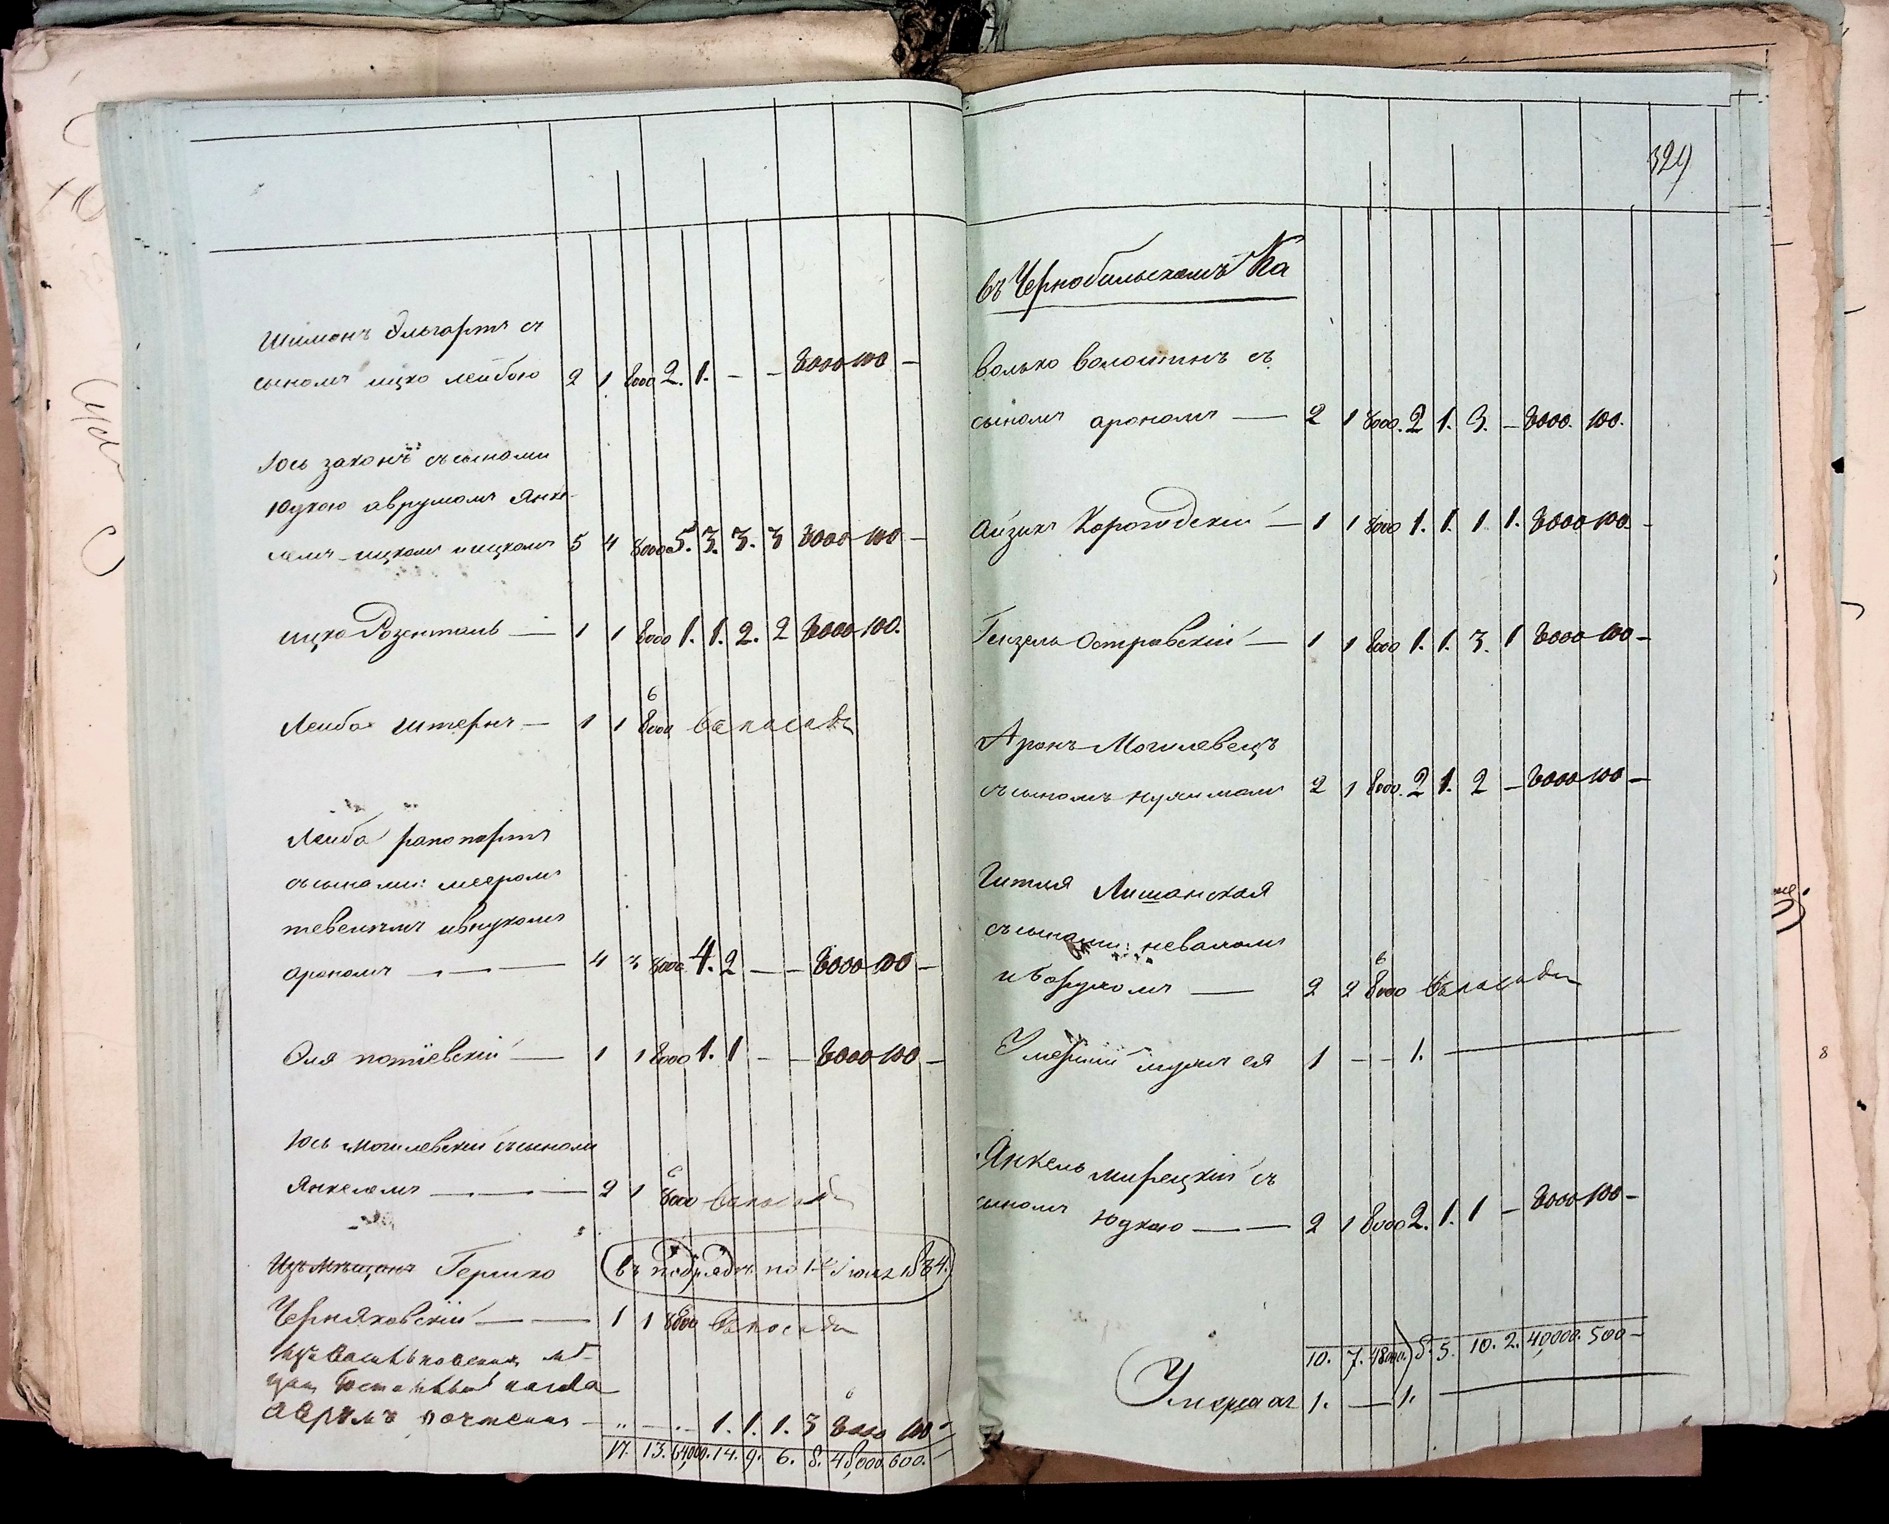 Шимонъ Ольгартъ съ
сыномъ ицко лейбою 2 1 8000 2. 1. – – 8000 100 –
Юсь законъ съ сынами
Юдкою аврумомъ Янке-
лемъ ицкомъ и ицкомъ 5 4 8000 5. 3. 3. 3 8000 100 –
ицко Розенталь — 1 1 8000 1. 1. 2. 2 8000 100.
6
Лейба штернъ — 1 1 8000
Лейба рапопортъ
съ сынами: мееромъ
тевелемъ и внукомъ
арономъ — — — 4 3 8000 4. 2 — – 8000 100 –
Оля потіевскій — 1 1 8000 1. 1 – – 8000 100 –
Юсь могилевскій съ сыномъ
Янкелемъ — — — 2 1 8000
Изъ мѣщанъ Гершко въ подрядѣ по 1834.
Черняховскій — — 1 1 8000
Аврумъ — 1. 1. 1. 3 8000 100 –
17. 13. 64,000. 14. 9. 6. 8. 48,000. 600. –
329
въ Чернобыльскомъ Ка
волько волошинъ съ
сыномъ арономъ — 2 1 8000. 2 1. 3. – 8000. 100.
Айзикъ Корогодскій — 1 1 8000 1. 1. 1 1. 8000 100. –
Гензель Островскій — 1 1 8000 1. 1. 3. 1 8000 100 –
Аронъ Могилевецъ
съ сыномъ нухимомъ 2 1 8000. 2 1. 2 – 8000 100 –
Гитля Лишанская
съ сынами:
и борухомъ — 2 2 8000
6
Умершій мужъ ея 1 – – 1. —
Янкель мирецкій съ
сыномъ Юдкою — — 2 1 8000 2. 1. 1 – 8000 100 –
10. 7. 48000. 8. 5. 10. 2. 40,000. 500 –
1. — 1. —